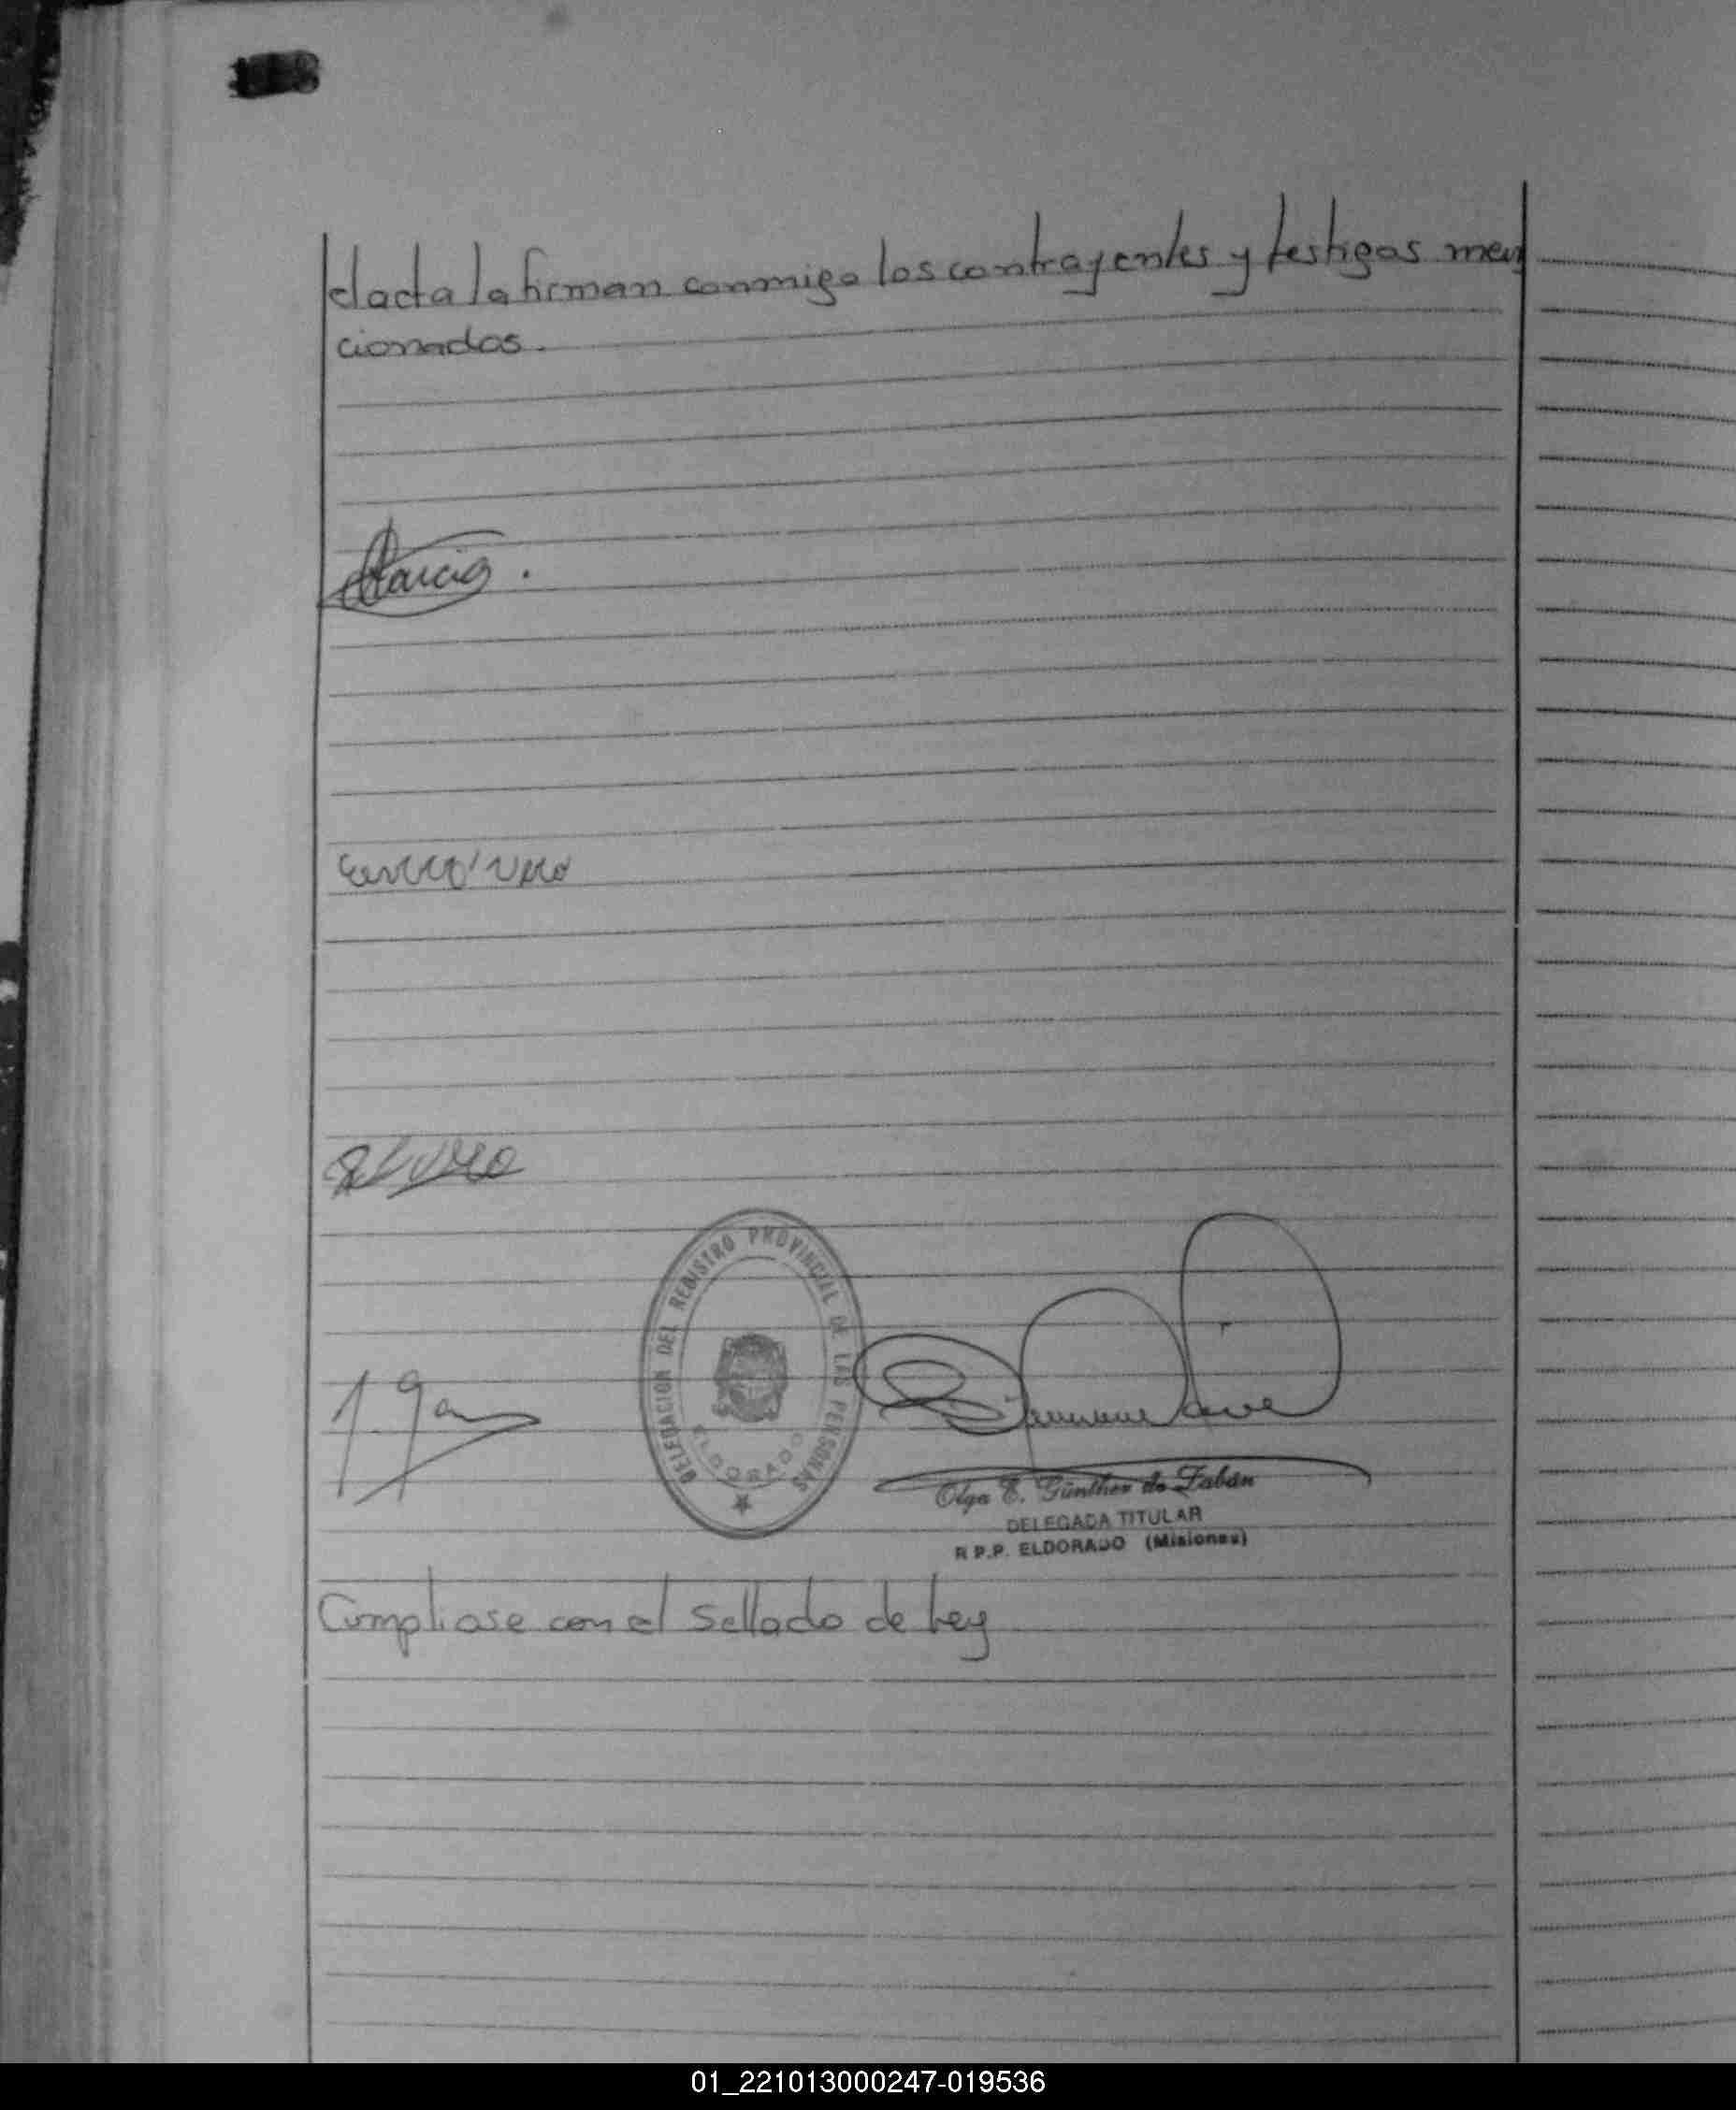 el acta la firman conmigo los contrayentes y testigos men
cionados.
Garcia.
DELEGACION DEL REGISTRO PROVINCIAL DE LAS PERSONAS
ELDORADO
Olga E. Günther de Zabán
DELEGADA TITULAR
R P.P. ELDORADO (Misiones)
Cumpliase con el sellado de Ley
01_221013000247-019536